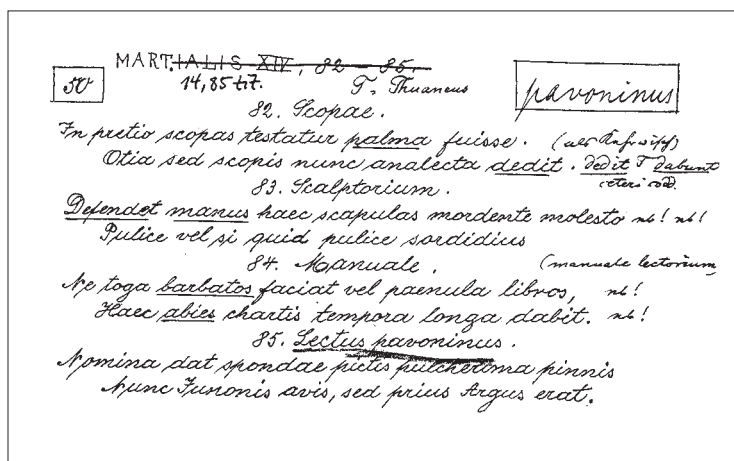 MARTIALIS XIV, 82 – 85.
50
14,85 tit.
T. Thuaneus
pavoninus
82. Scopae.
In pretio scopas testatur palma fuisse. (als
Otia sed scopis nunc analecta dedit. dedit T dabunt
ceteri codd.
83. Scalptorium.
Defendet manus haec scapulas mordente molesto nb! nb!
Pulice vel si quid pulice sordidius
84. Manuale. (manuale lectorium
Ne toga barbatos faciat vel paenula libros, nb!
Haec abies chartis tempora longa dabit. nb!
85. Lectus pavoninus.
Nomina dat spondae pictis pulcherima pinnis
Nunc Junonis avis, sed prius Argus erat.